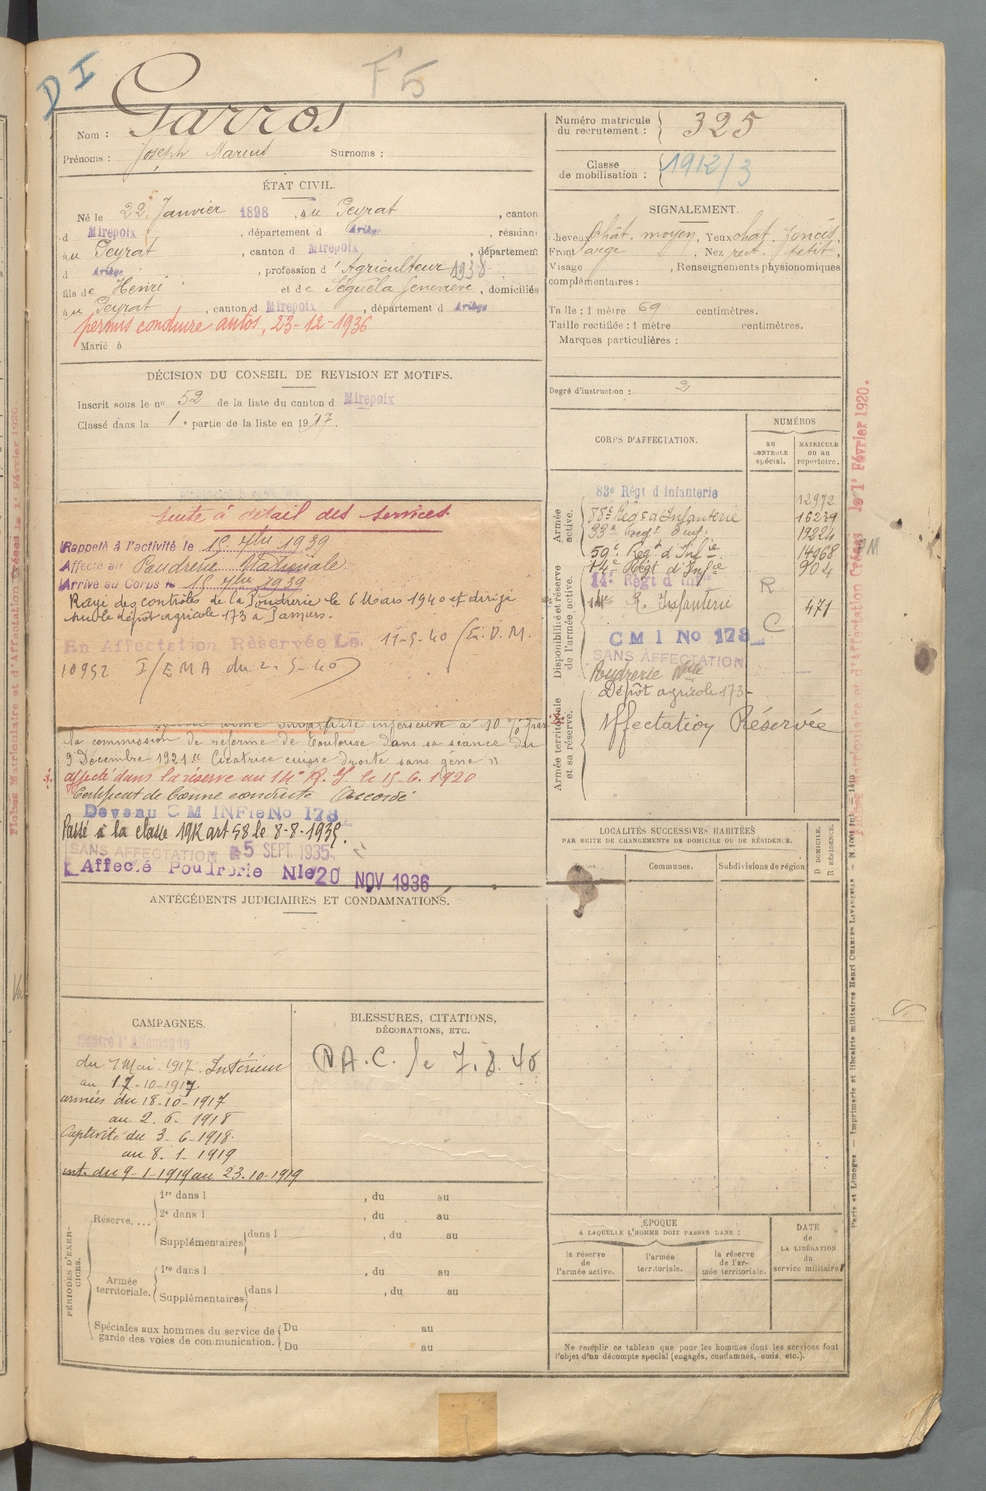 D I
F 5
Nom : Garros
Prénoms : Joseph Marius Surnoms :
ÉTAT CIVIL.
Né le 22 Janvier 1898, au Peyrat, canton
d Mirepoix, département d Ariège, résidant
au Peyrat, canton d Mirepoix, département
d Ariège, profession d'Agriculteur 1938
fils de Henri et de Séguéla Geneviève, domiciliés
au Peyrat, canton d Mirepoix, département d Ariège
permis conduire autos, 23-12-1936
Marié à
DÉCISION DU CONSEIL DE REVISION ET MOTIFS.
Inscrit sous le no 52 de la liste du canton d Mirepoix
Classé dans la 1e partie de la liste en 1917.
Suite à détail des services
Rappelé à l'activité le 15 7bre 1939
Affecté au Poudrerie Nationale
Arrivé au Corps le 15 7bre 1939
Rayé des contrôles de la Poudrerie le 6 Mars 1940 et dirigé
sur le dépôt agricole 173 à Pamiers.
En Affectation Réservée Le 11-5-40 (E.D.M.
10952 I/EMA du 2-5-40)
inférieure à 10 % par
la commission de réforme de Toulouse dans sa séance du
9 Décembre 1921 "Cicatrice cuisse droite sans gêne"
affecté dans la réserve au 14e R.I. le 15.6.1920
Certificat de bonne conduite Accordé
Devenu C M INFie No 178
Passé à la classe 1912 art 58 le 8-8-1935
SANS AFFECTATION 25 SEPT. 1935
Affecté Poudrerie Nle 20 NOV 1936
ANTÉCÉDENTS JUDICIAIRES ET CONDAMNATIONS.
CAMPAGNES.
Contre l'Allemagne
du 1 Mai 1917 Intérieur
au 17-10-1917.
armées du 18-10-1917
au 2. 6. 1918
Captivité du 3-6-1918
au 8. 1. 1919
int. du 9-1-1919 au 23.10-1919
BLESSURES, CITATIONS,
DÉCORATIONS, ETC.
D.A.C. le 7.8.40
PÉRIODES D'EXERCICES.
Réserve....
1re dans l , du au
2e dans l , du au
Supplémentaires dans l , du au
Armée territoriale.
1re dans l , du au
Supplémentaires dans l , du au
Spéciales aux hommes du service de garde des voies de communication.
Du au
Du au
Numéro matricule du recrutement : 325
Classe de mobilisation : 1912/3
SIGNALEMENT.
Cheveux chât. moyen, Yeux chat. foncés,
Front large, Nez rect. petit,
Visage , Renseignements physionomiques
complémentaires :
Taille : 1 mètre 69 centimètres.
Taille rectifiée : 1 mètre centimètres.
Marques particulières :
Degré d'instruction : 2
CORPS D'AFFECTATION.
NUMÉROS
AU CONTROLE spécial.
MATRICULE OU AU répertoire.
Armée active.
83e Régt d Infanterie 12972
88e Régt d'Infanterie 16239
33e Régt d'Inf. 17824
59e Régt d'Infie 14468
14e Régt d'Infie 904
Disponibilité et réserve de l'armée active.
14e Régt d Infie R
14e R. Infanterie 471
C
C M I No 178
SANS AFFECTATION
Poudrerie Nale
Dépôt agricole 173
Armée territoriale et sa réserve.
Affectation Réservée
LOCALITÉS SUCCESSIVES HABITÉES
PAR SUITE DE CHANGEMENTS DE DOMICILE OU DE RÉSIDENCE.
Communes.
Subdivisions de région
D DOMICILE.
R RÉSIDENCE.
ÉPOQUE
A LAQUELLE L'HOMME DOIT PASSER DANS :
la réserve de l'armée active.
l'armée territoriale.
la réserve de l'armée territoriale.
DATE DE LA LIBÉRATION du service militaire
Ne remplir ce tableau que pour les hommes dont les services font
l'objet d'un décompte spécial (engagés, condamnés, omis, etc.).
Paris et Limoges — Imprimerie et librairie militaires Henri CHARLES-LAVAUZELLE
Fiches Matriculaire et d'Affectation Créées le 1er Février 1920.